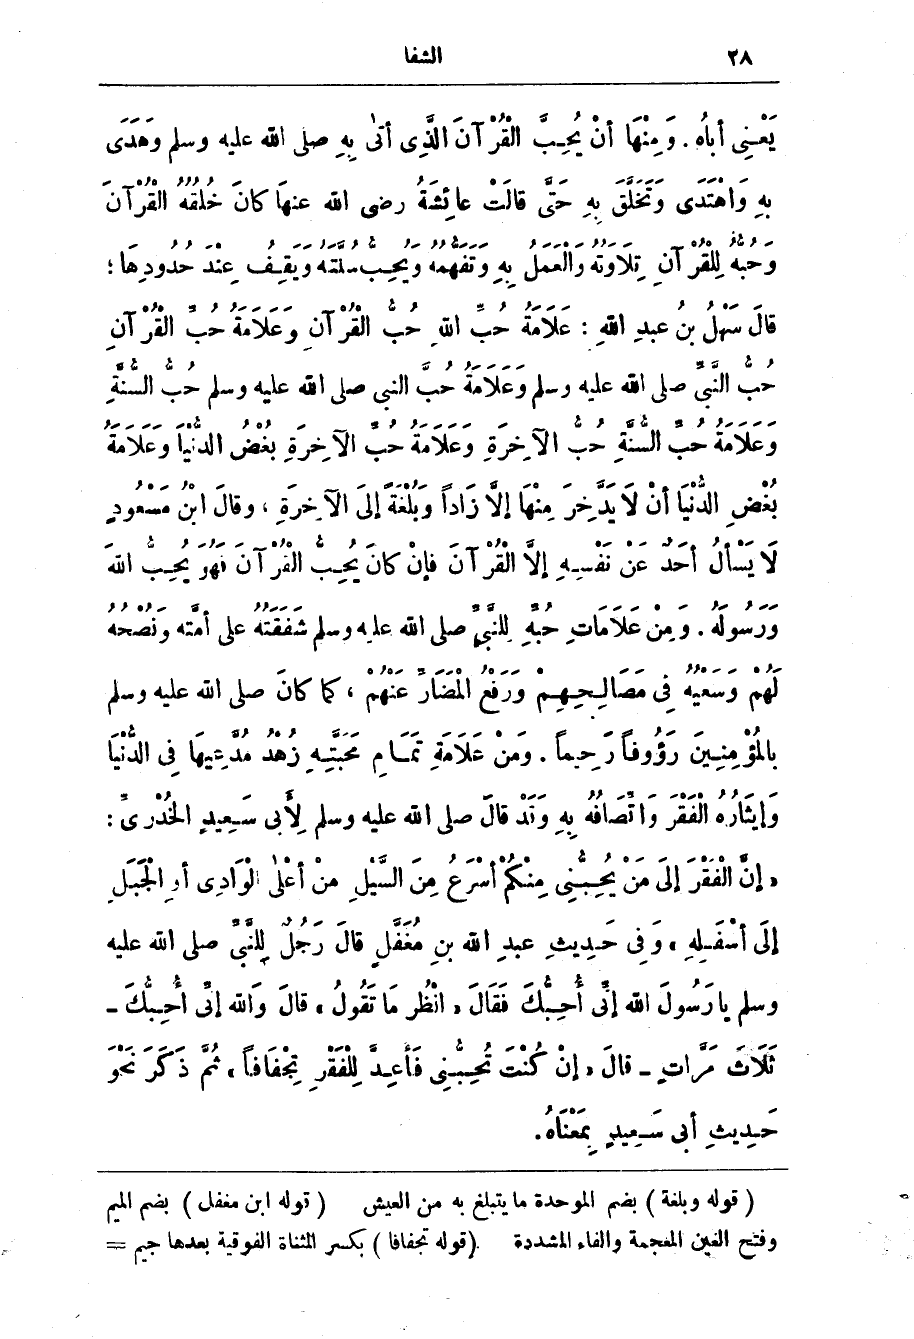 ٢٨ الشفا
يَعْنِى أباهُ. وَمِنْهَا أنْ يُحِبَّ الْقُرْآنَ الَّذِى أتَى بِهِ صلى الله عليه وسلم وَهَدَى
بِهِ وَاهْتَدَى وَتَخَلَّقَ بِهِ حَتَّى قالَتْ عائِشَةُ رضى الله عنها كانَ خُلُقُهُ الْقُرْآنَ
وَحُبُّهُ لِلْقُرْآنِ تِلَاوَتُهُ وَالْعَمَلُ بِهِ وَتَفَهُّمُهُ وَيُحِبُّ سُنَّتَهُ وَيَقِفُ عِنْدَ حُدُودِهَا؛
قالَ سَهْلُ بنُ عبدِ اللهِ : عَلَامَةُ حُبِّ اللهِ حُبُّ الْقُرْآنِ وَعَلَامَةُ حُبِّ الْقُرْآنِ
حُبُّ النَّبِىِّ صلى الله عليه وسلم وَعَلَامَةُ حُبِّ النبى صلى الله عليه وسلم حُبُّ السُّنَّةِ
وَعَلَامَةُ حُبِّ السُّنَّةِ حُبُّ الآخِرَةِ وَعَلَامَةُ حُبِّ الآخِرَةِ بُغْضُ الدُّنْيَا وَعَلَامَةُ
بُغْضِ الدُّنْيَا أنْ لَا يَدَّخِرَ مِنْهَا إلَّا زَاداً وَبُلْغَةً إلَى الآخِرَةِ ، وقالَ ابْنُ مَسْعُودٍ
لَا يَسْأَلُ أحَدٌ عَنْ نَفْسِهِ إلَّا الْقُرْآنَ فإنْ كانَ يُحِبُّ القُرْآنَ فَهُوَ يُحِبُّ اللهَ
وَرَسُولَهُ. وَمِنْ عَلَامَاتِ حُبِّهِ لِلنَّبِىِّ صلى الله عليه وسلم شَفَقَتُهُ على أمَّتِهِ وَنُصْحُهُ
لَهُمْ وَسَعْيُهُ فِى مَصَالِحِهِمْ وَرَفْعُ الْمَضَارِّ عَنْهُمْ ، كما كانَ صلى الله عليه وسلم
بالْمُؤْمِنِينَ رَؤُوفاً رَحِيماً. وَمِنْ عَلَامَةِ تَمَامِ مَحَبَّتِهِ زُهْدُ مُدَّعِيهَا فِى الدُّنْيَا
وَإيثَارُهُ الْفَقْرَ وَاتِّصَافُهُ بِهِ وَقَدْ قالَ صلى الله عليه وسلم لِأَبى سَعِيدٍ الخُدْرِىِّ :
« إنَّ الْفَقْرَ إلَى مَنْ يُحِبُّنِى مِنْكُمْ أَسْرَعُ مِنَ السَّيْلِ مِنْ أعْلَى الْوَادِى أوِ الْجَبَلِ
إلَى أسْفَلِهِ » وَفى حَدِيثِ عبدِ الله بنِ مُغَفَّلٍ قالَ رَجُلٌ لِلنَّبِىِّ صلى الله عليه
وسلم يا رَسُولَ الله إنِّى أُحِبُّكَ فَقَالَ « انْظُر مَا تَقُولُ » قالَ وَالله إنِّى أُحِبُّكَ -
ثَلَاثَ مَرَّاتٍ - قالَ « إنْ كُنْتَ تُحِبُّنِى فَأَعِدَّ لِلْفَقْرِ تِجْفَافاً » ثُمَّ ذَكَرَ نَحْوَ
حَدِيثِ أبى سَعِيدٍ بِمَعْنَاهُ.
( قوله وبلغة ) بضم الموحدة ما يتبلغ به من العيش ( قوله ابن مغفل ) بضم الميم
وفتح الغين المعجمة والفاء المشددة (قوله تجفافا) بكسر المثناة الفوقية بعدها جيم =